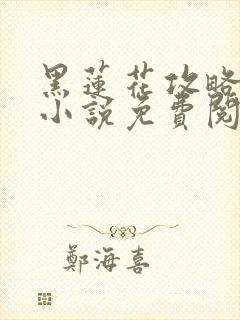 黑蓮花攻略
小說免費閱
鄭海喜